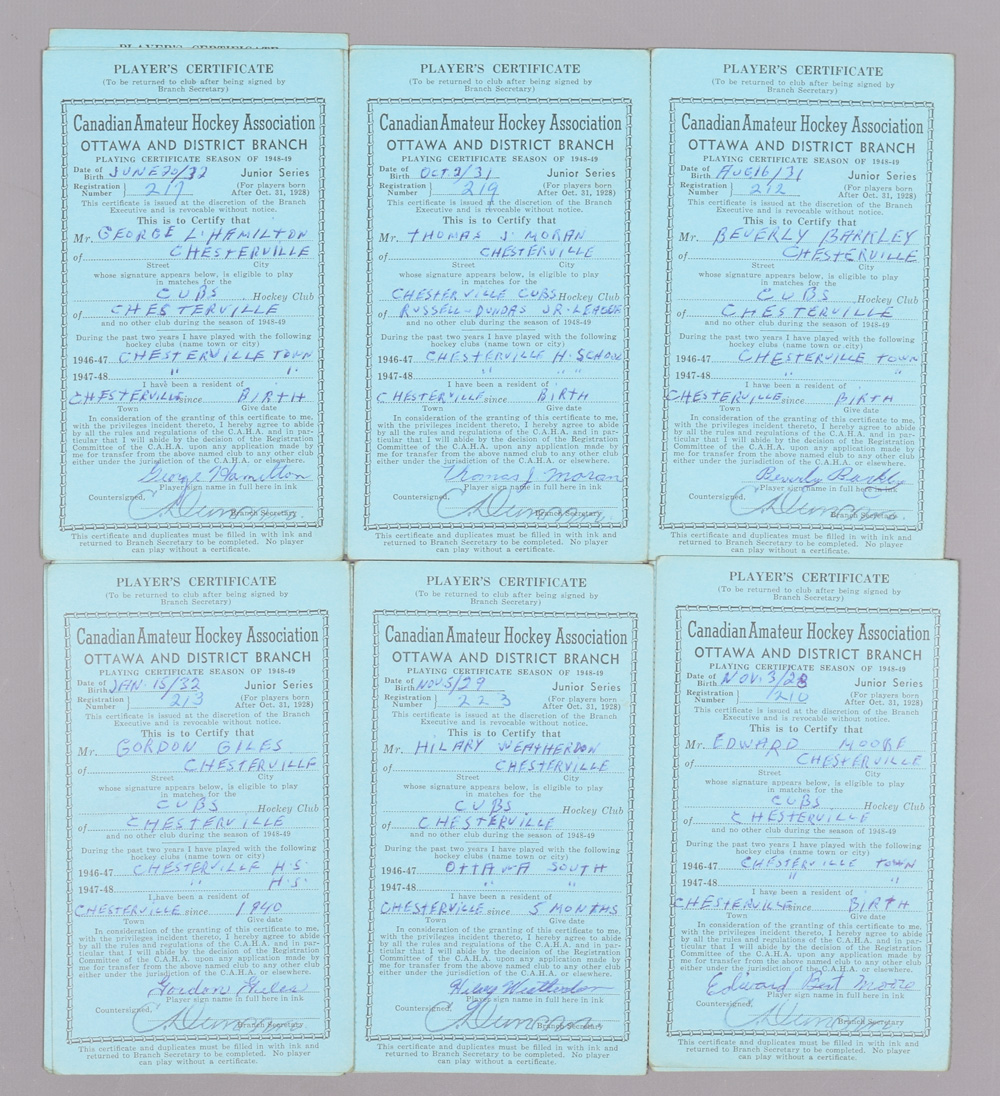 PLAYER'S CERTIFICATE
PLAYER'S CERTIFICATE
(To be returned to club after being signed by
Branch Secretary)
Canadian Amateur Hockey Association
OTTAWA AND DISTRICT BRANCH
PLAYING CERTIFICATE SEASON OF 1948-49
Date of
Birth JUNE 20/32 Junior Series
Registration
Number 217 (For players born
After Oct. 31, 1928)
This certificate is issued at the discretion of the Branch
Executive and is revocable without notice.
This is to Certify that
Mr. GEORGE L. HAMILTON
of CHESTERVILLE
Street City
whose signature appears below, is eligible to play
in matches for the
CUBS Hockey Club
of CHESTERVILLE
and no other club during the season of 1948-49
During the past two years I have played with the following
hockey clubs (name town or city)
1946-47 CHESTERVILLE TOWN
1947-48 " "
I have been a resident of
CHESTERVILLE since BIRTH
Town Give date
In consideration of the granting of this certificate to me,
with the privileges incident thereto, I hereby agree to abide
by all the rules and regulations of the C.A.H.A. and in par-
ticular that I will abide by the decision of the Registration
Committee of the C.A.H.A. upon any application made by
me for transfer from the above named club to any other club
either under the jurisdiction of the C.A.H.A. or elsewhere.
George Hamilton
Player sign name in full here in ink
Countersigned,
Branch Secretary
This certificate and duplicates must be filled in with ink and
returned to Branch Secretary to be completed. No player
can play without a certificate.
PLAYER'S CERTIFICATE
(To be returned to club after being signed by
Branch Secretary)
Canadian Amateur Hockey Association
OTTAWA AND DISTRICT BRANCH
PLAYING CERTIFICATE SEASON OF 1948-49
Date of
Birth OCT 2/31 Junior Series
Registration
Number 219 (For players born
After Oct. 31, 1928)
This certificate is issued at the discretion of the Branch
Executive and is revocable without notice.
This is to Certify that
Mr. THOMAS J. MORAN
of CHESTERVILLE
Street City
whose signature appears below, is eligible to play
in matches for the
CHESTERVILLE CUBS Hockey Club
of RUSSELL-DUNDAS JR. LEAGUE
and no other club during the season of 1948-49
During the past two years I have played with the following
hockey clubs (name town or city)
1946-47 CHESTERVILLE H. SCHOOL
1947-48 " " "
I have been a resident of
CHESTERVILLE since BIRTH
Town Give date
In consideration of the granting of this certificate to me,
with the privileges incident thereto, I hereby agree to abide
by all the rules and regulations of the C.A.H.A. and in par-
ticular that I will abide by the decision of the Registration
Committee of the C.A.H.A. upon any application made by
me for transfer from the above named club to any other club
either under the jurisdiction of the C.A.H.A. or elsewhere.
Thomas J Moran
Player sign name in full here in ink
Countersigned,
Branch Secretary
This certificate and duplicates must be filled in with ink and
returned to Branch Secretary to be completed. No player
can play without a certificate.
PLAYER'S CERTIFICATE
(To be returned to club after being signed by
Branch Secretary)
Canadian Amateur Hockey Association
OTTAWA AND DISTRICT BRANCH
PLAYING CERTIFICATE SEASON OF 1948-49
Date of
Birth AUG 16/31 Junior Series
Registration
Number 212 (For players born
After Oct. 31, 1928)
This certificate is issued at the discretion of the Branch
Executive and is revocable without notice.
This is to Certify that
Mr. BEVERLY BARKLEY
of CHESTERVILLE
Street City
whose signature appears below, is eligible to play
in matches for the
CUBS Hockey Club
of CHESTERVILLE
and no other club during the season of 1948-49
During the past two years I have played with the following
hockey clubs (name town or city)
1946-47 CHESTERVILLE TOWN
1947-48 "
I have been a resident of
CHESTERVILLE since BIRTH
Town Give date
In consideration of the granting of this certificate to me,
with the privileges incident thereto, I hereby agree to abide
by all the rules and regulations of the C.A.H.A. and in par-
ticular that I will abide by the decision of the Registration
Committee of the C.A.H.A. upon any application made by
me for transfer from the above named club to any other club
either under the jurisdiction of the C.A.H.A. or elsewhere.
Beverly Barkley
Player sign name in full here in ink
Countersigned,
Branch Secretary
This certificate and duplicates must be filled in with ink and
returned to Branch Secretary to be completed. No player
can play without a certificate.
PLAYER'S CERTIFICATE
(To be returned to club after being signed by
Branch Secretary)
Canadian Amateur Hockey Association
OTTAWA AND DISTRICT BRANCH
PLAYING CERTIFICATE SEASON OF 1948-49
Date of
Birth JAN. 15/32 Junior Series
Registration
Number 213 (For players born
After Oct. 31, 1928)
This certificate is issued at the discretion of the Branch
Executive and is revocable without notice.
This is to Certify that
Mr. GORDON GILES
of CHESTERVILLE
Street City
whose signature appears below, is eligible to play
in matches for the
CUBS Hockey Club
of CHESTERVILLE
and no other club during the season of 1948-49
During the past two years I have played with the following
hockey clubs (name town or city)
1946-47 CHESTERVILLE H.S.
1947-48 " H.S.
I have been a resident of
CHESTERVILLE since 1940
Town Give date
In consideration of the granting of this certificate to me,
with the privileges incident thereto, I hereby agree to abide
by all the rules and regulations of the C.A.H.A. and in par-
ticular that I will abide by the decision of the Registration
Committee of the C.A.H.A. upon any application made by
me for transfer from the above named club to any other club
either under the jurisdiction of the C.A.H.A. or elsewhere.
Gordon Giles
Player sign name in full here in ink
Countersigned,
Branch Secretary
This certificate and duplicates must be filled in with ink and
returned to Branch Secretary to be completed. No player
can play without a certificate.
PLAYER'S CERTIFICATE
(To be returned to club after being signed by
Branch Secretary)
Canadian Amateur Hockey Association
OTTAWA AND DISTRICT BRANCH
PLAYING CERTIFICATE SEASON OF 1948-49
Date of
Birth NOV 5/29 Junior Series
Registration
Number 223 (For players born
After Oct. 31, 1928)
This certificate is issued at the discretion of the Branch
Executive and is revocable without notice.
This is to Certify that
Mr. HILARY WEATHERDON
of CHESTERVILLE
Street City
whose signature appears below, is eligible to play
in matches for the
CUBS Hockey Club
of CHESTERVILLE
and no other club during the season of 1948-49
During the past two years I have played with the following
hockey clubs (name town or city)
1946-47 OTTAWA SOUTH
1947-48 " "
I have been a resident of
CHESTERVILLE since 5 MONTHS
Town Give date
In consideration of the granting of this certificate to me,
with the privileges incident thereto, I hereby agree to abide
by all the rules and regulations of the C.A.H.A. and in par-
ticular that I will abide by the decision of the Registration
Committee of the C.A.H.A. upon any application made by
me for transfer from the above named club to any other club
either under the jurisdiction of the C.A.H.A. or elsewhere.
Hilary Weatherdon
Player sign name in full here in ink
Countersigned,
Branch Secretary
This certificate and duplicates must be filled in with ink and
returned to Branch Secretary to be completed. No player
can play without a certificate.
PLAYER'S CERTIFICATE
(To be returned to club after being signed by
Branch Secretary)
Canadian Amateur Hockey Association
OTTAWA AND DISTRICT BRANCH
PLAYING CERTIFICATE SEASON OF 1948-49
Date of
Birth NOV. 3/28 Junior Series
Registration
Number 210 (For players born
After Oct. 31, 1928)
This certificate is issued at the discretion of the Branch
Executive and is revocable without notice.
This is to Certify that
Mr. EDWARD MOORE
of CHESTERVILLE
Street City
whose signature appears below, is eligible to play
in matches for the
CUBS Hockey Club
of CHESTERVILLE
and no other club during the season of 1948-49
During the past two years I have played with the following
hockey clubs (name town or city)
1946-47 CHESTERVILLE TOWN
1947-48 " "
I have been a resident of
CHESTERVILLE since BIRTH
Town Give date
In consideration of the granting of this certificate to me,
with the privileges incident thereto, I hereby agree to abide
by all the rules and regulations of the C.A.H.A. and in par-
ticular that I will abide by the decision of the Registration
Committee of the C.A.H.A. upon any application made by
me for transfer from the above named club to any other club
either under the jurisdiction of the C.A.H.A. or elsewhere.
Edward Bert Moore
Player sign name in full here in ink
Countersigned,
Branch Secretary
This certificate and duplicates must be filled in with ink and
returned to Branch Secretary to be completed. No player
can play without a certificate.